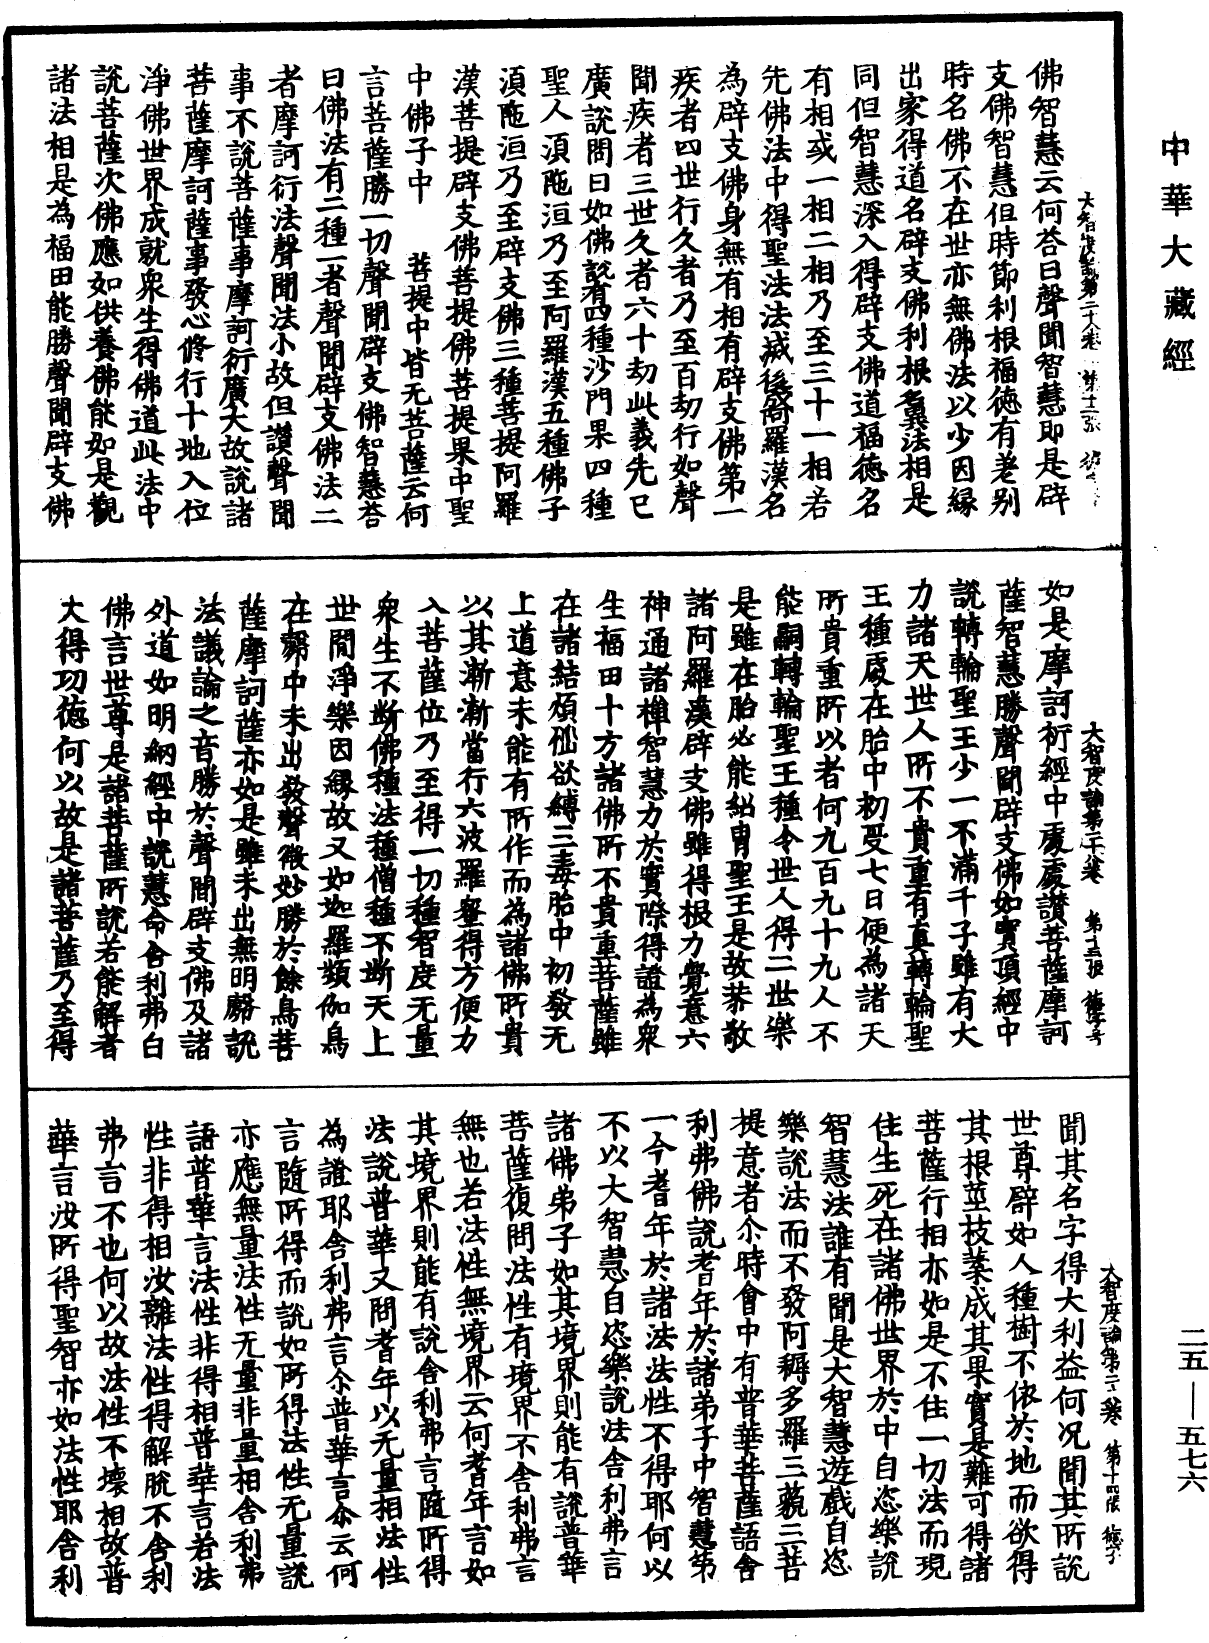 中華大藏經
佛智慧云何荅曰聲聞智慧即是辟
支佛智慧但時節利根福德有差别
時名佛不在世亦無佛法以少因緣
出家得道名辟支佛利根名異法相是
同但智慧深入得辟支佛道福德名
有相或一相二相乃至三十一相若
先佛法中得聖法法滅後爲羅漢名
為辟支佛身無有相有辟支佛第一
疾者四世行久者乃至百劫行如聲
聞疾者三世久者六十劫此義先已
廣說問曰如佛說有四種沙門果四種
聖人湏陁洹乃至阿羅漢五種佛子
湏陁洹乃至辟支佛三種菩提阿羅
漢菩提辟支佛菩提佛菩提果中聖
中佛子中 菩提中皆无菩薩云何
言菩薩勝一切聲聞辟支佛智慧荅
曰佛法有二種一者聲聞辟支佛法二
者摩訶衍法聲聞法小故但讃聲聞
事不說菩薩事摩訶衍廣大故說諸
菩薩摩訶薩事發心脩行十地入位
淨佛世界成就衆生得佛道此法中
說菩薩次佛應如供養佛能如是觀
諸法相是為福田能勝聲聞辟支佛
大智度論第二十八卷
如是摩訶衍經中處處讃菩薩摩訶
薩智慧勝聲聞辟支佛如寶頂經中
說轉輪聖王少一不滿千子雖有大
力諸天世人所不貴重有真轉輪聖
王種處在胎中初受七日便為諸天
所貴重所以者何九百九十九人不
能嗣轉輪聖王種令世人得二世樂
是雖在胎必能紹胄聖王是故恭敬
諸阿羅漢辟支佛雖得根力覺意六
神通諸禪智慧力於實際得證為衆
生福田十方諸佛所不貴重菩薩雖
在諸結煩惱欲縛三毒胎中初發无
上道意未能有所作而為諸佛所貴
以其漸漸當行六波羅蜜得方便力
入菩薩位乃至得一切種智度无量
衆生不斷佛種法種僧種不斷天上
世間淨樂因緣故又如迦羅頻伽鳥
在㲉中未出發聲微妙勝於餘鳥菩
薩摩訶薩亦如是雖未出無明㲉說
法議論之音勝於聲聞辟支佛及諸
外道如明網經中說慧命舍利弗白
佛言世尊是諸菩薩所說若能解者
大得功德何以故是諸菩薩乃至得
大智度論第二十八卷 第十三張
聞其名字得大利益何況聞其所說
世尊辟如人種樹不依於地而欲得
其根莖枝葉成其果實是難可得諸
菩薩行相亦如是不住一切法而現
住生死在諸佛世界於中自恣樂說
智慧法誰有聞是大智慧遊戲自恣
樂說法而不發阿耨多羅三藐三菩
提意者尒時會中有普華菩薩語舍
利弗佛說耆年於諸弟子中智慧第
一今耆年於諸法法性不得耶何以
不以大智慧自恣樂說法舍利弗言
諸佛弟子如其境界則能有說普華
菩薩復問法性有境界不舍利弗言
無也若法性無境界云何耆年言如
其境界則能有說舍利弗言隨所得
法說普華又問耆年以无量相法性
為證耶舍利弗言尒普華言尒云何
言隨所得而說如所得法性无量說
亦應無量法性无量非量相舍利弗
語普華言法性非得相普華言若法
性非得相汝離法性得解脫不舍利
弗言不也何以故法性不壞相故普
華言汝所得聖智亦如法性耶舍利
大智度論第二十八卷 第十四張
二五—五七六